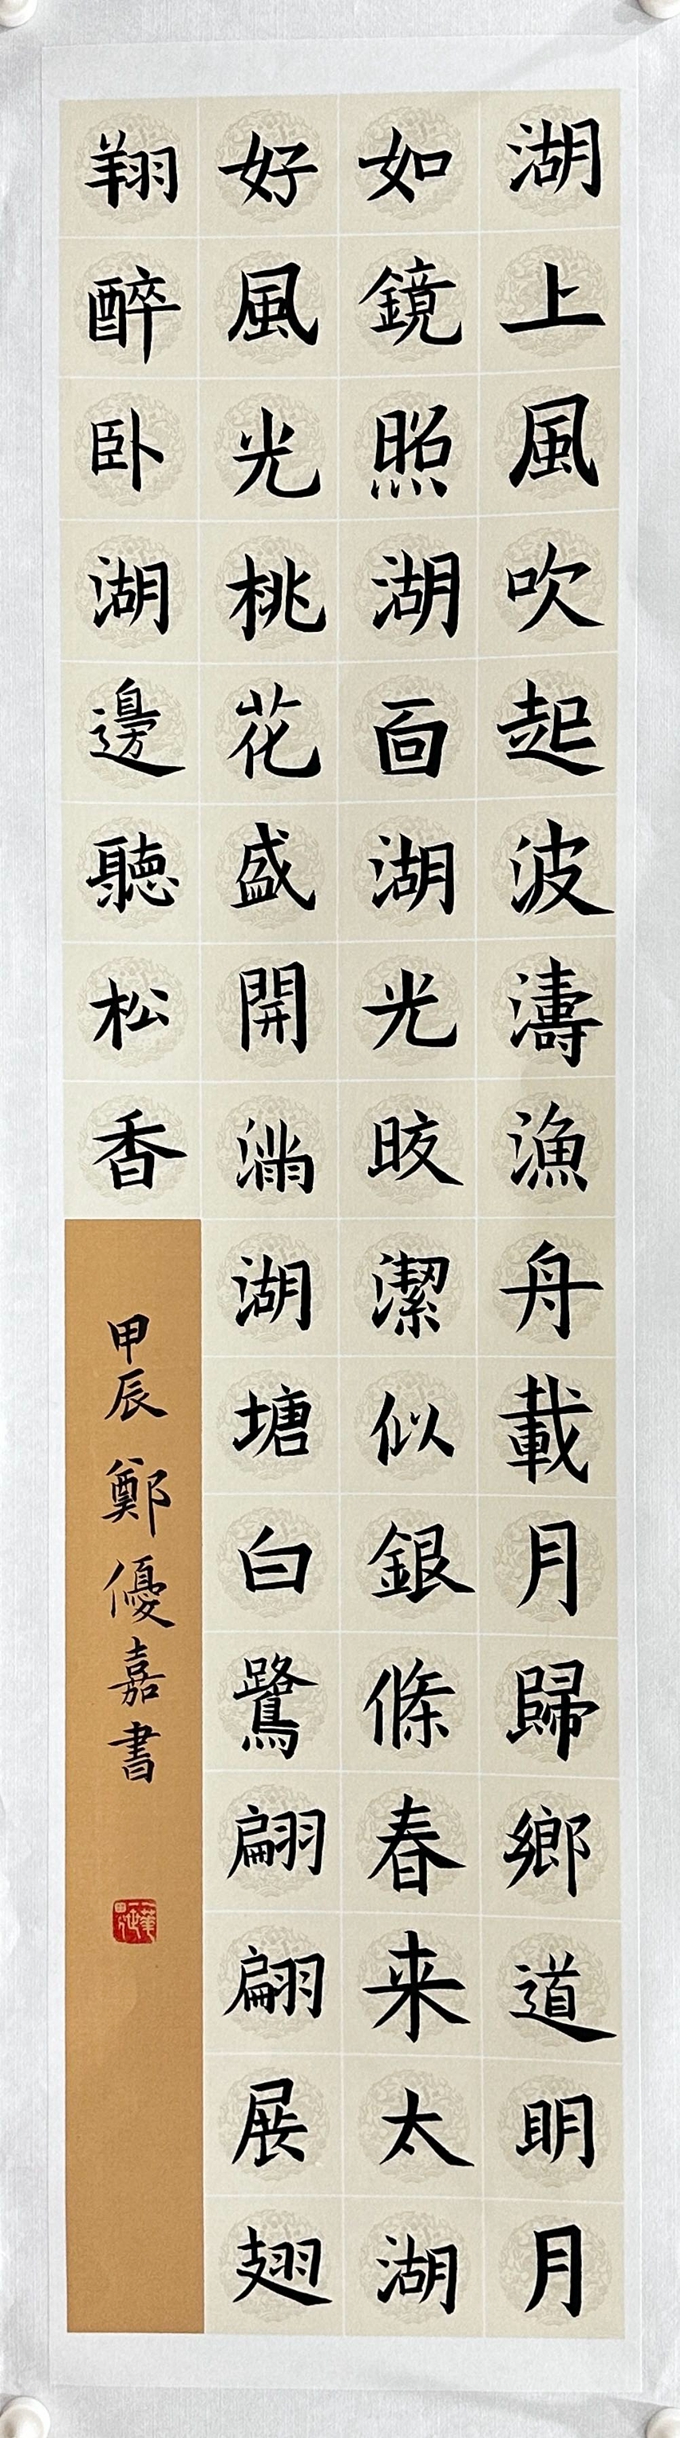 湖上風吹起波濤漁舟載月歸鄉道明月
如鏡照湖面湖光晈潔似銀條春来太湖
好風光桃花盛開滿湖塘白鷺翩翩展翅
翔醉卧湖邊聽松香
甲辰 鄭優嘉書